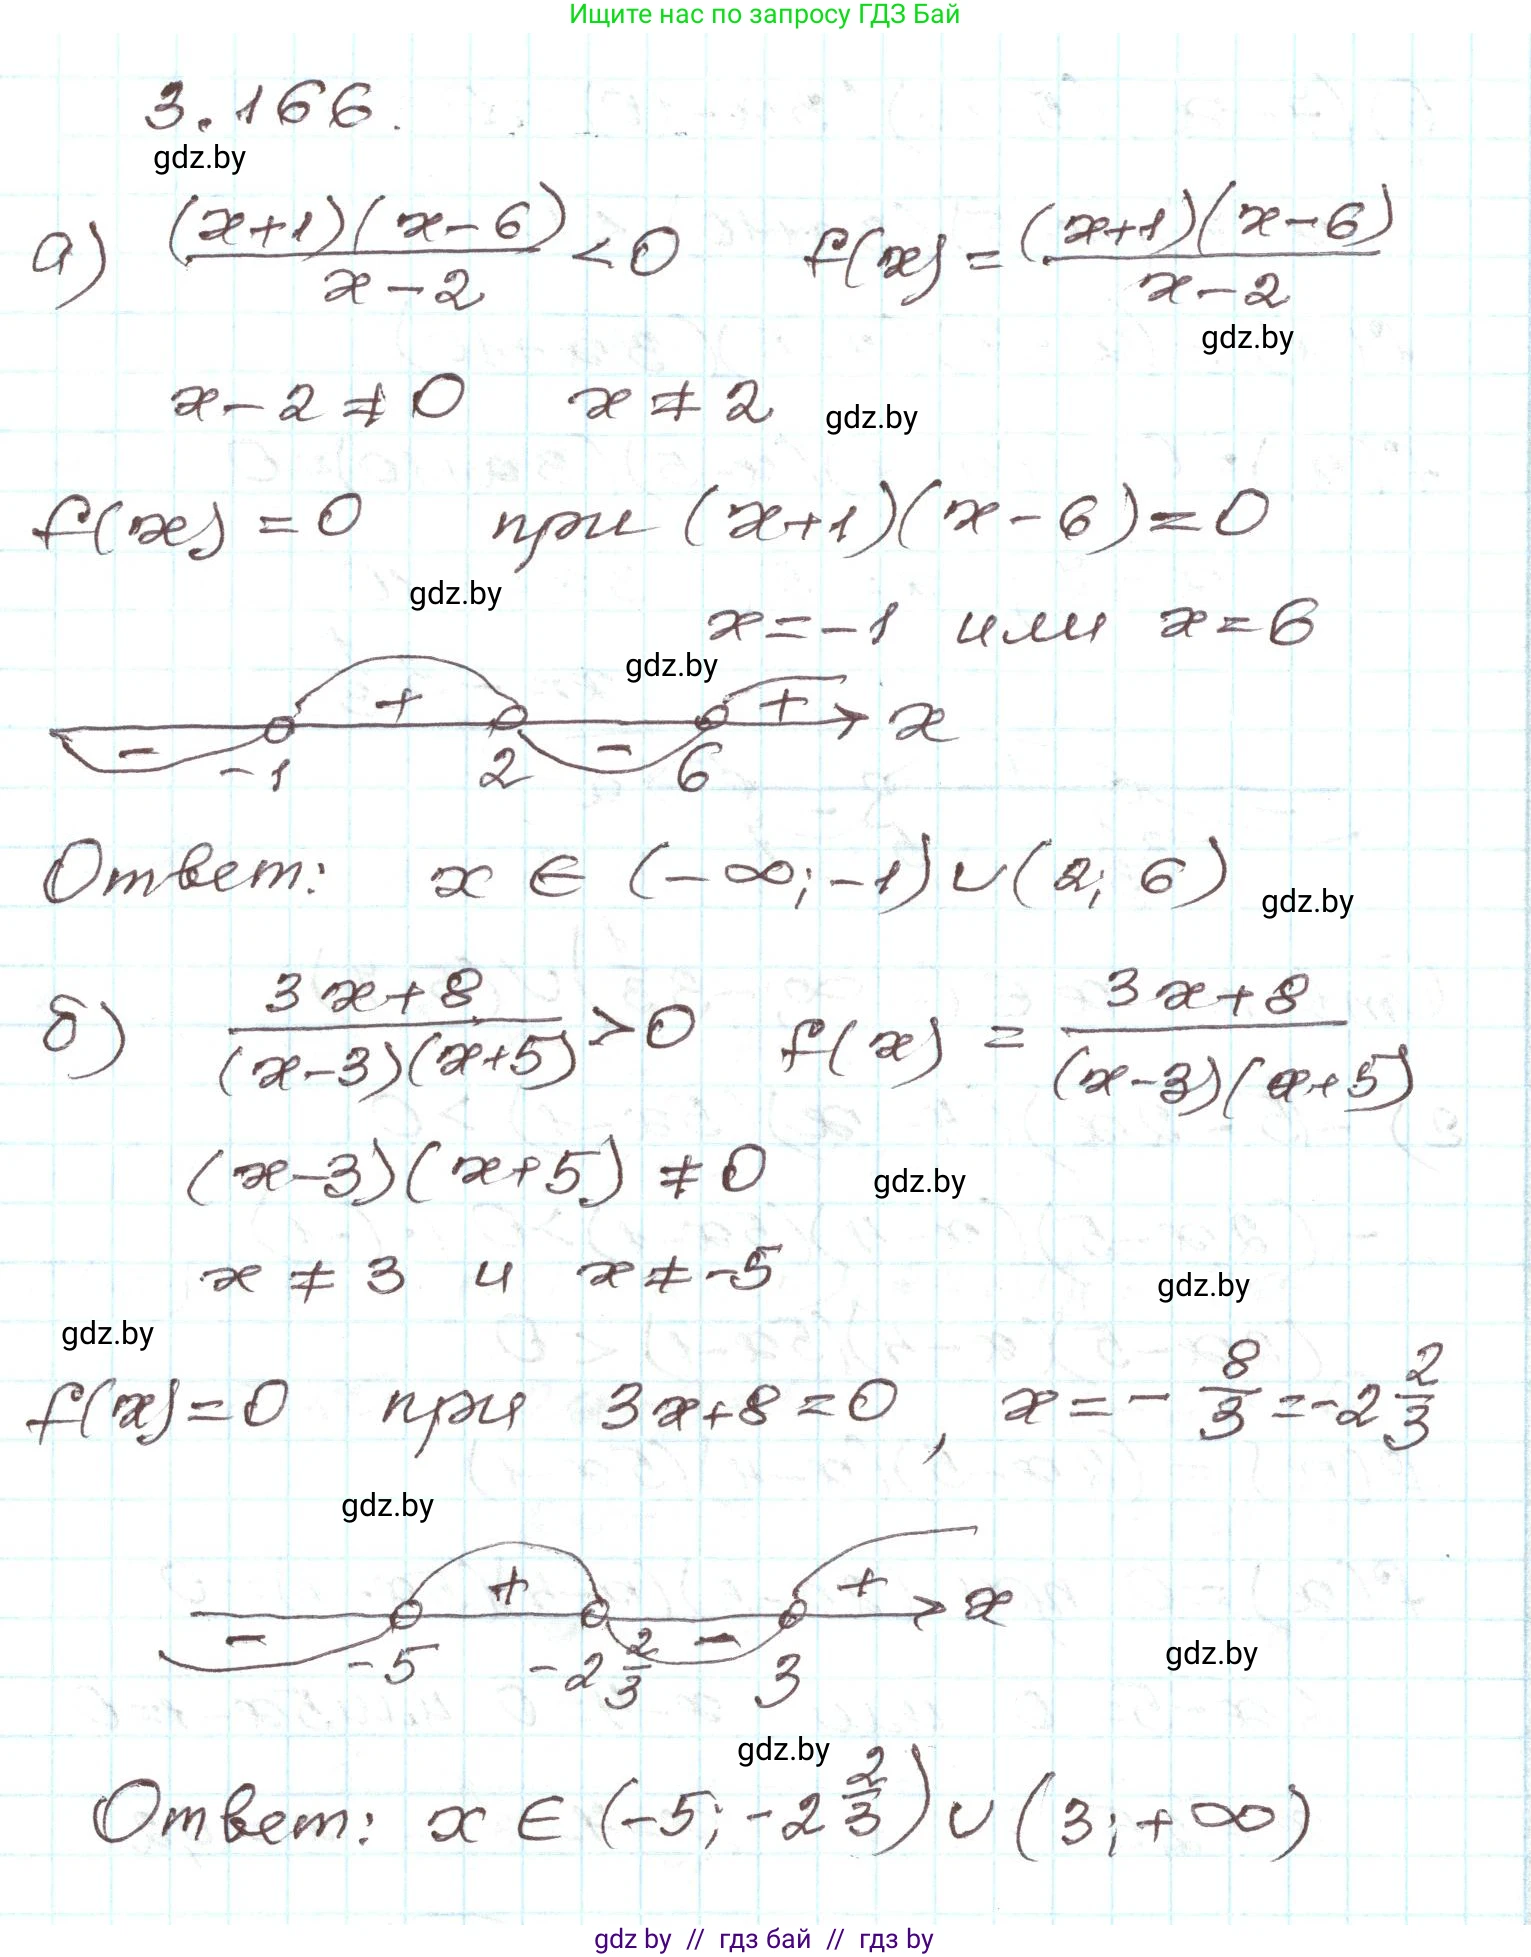 Ищите нас по запросу ГДЗ Бай
3.166.
gdz.by
а) (x+1)(x-6)/(x-2) < 0 f(x) = (x+1)(x-6)/(x-2)
gdz.by
x-2≠0 x≠2 gdz.by
f(x)=0 при (x+1)(x-6)=0
gdz.by
x=-1 или x=6
gdz.by
- + - + x
-1 2 6
Ответ: x ∈ (-∞; -1) ∪ (2; 6) gdz.by
б) (3x+8)/((x-3)(x+5)) > 0 f(x) = (3x+8)/((x-3)(x+5))
(x-3)(x+5) ≠ 0 gdz.by
x ≠ 3 и x ≠ -5 gdz.by
gdz.by
f(x)=0 при 3x+8=0, x = -8/3 = -2 2/3
gdz.by
- + - + x
-5 -2 2/3 3 gdz.by
gdz.by
Ответ: x ∈ (-5; -2 2/3) ∪ (3; +∞)
gdz by // гдз бай // гдз by